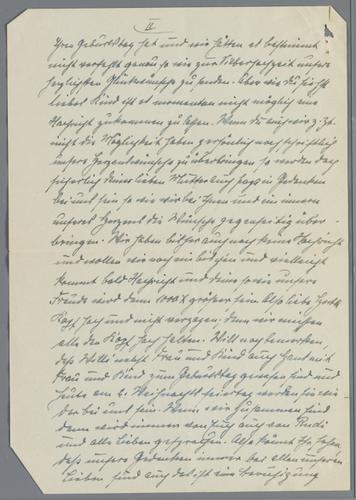 II
Ihren Geburtstag hat und wir hätten es bestimmt
nicht verfehlt genau so wie zur Silberhochzeit unsere
herzlichsten Glückwünsche zu senden. Aber wie du siehst
lieber Kind ist es momentan nicht möglich eine
Nachricht zukommen zu lassen. Wenn du auch wir z. Zt.
nicht die Möglichkeit haben persönlich noch schriftlich
unsere Herzenswünsche zu überbringen, so werden doch
sicherlich deine lieben Mutter auch Papa in Gedenken
bei uns sein so wie wir bei Ihnen und im innern
unseres Herzens die Wünsche gegenseitig über-
bringen. Wir haben bisher auch noch keine Nachricht
und wollen wir noch ein bißchen und vielleicht
kommt bald Nachricht und deine so wie unsere
Freude wird dann 1000 X größer sein. Also liebe
Kopf hoch und nicht verzagen, denn wir müssen
alle den Kopf hoch halten. Will noch bemerken,
daß Willi nebst Frau und Kind auch Hans mit
Frau und Kind zum Geburtstag gewesen sind und
heute am 2. Weihnachtsfeiertag werden sie wie-
der bei uns sein. Wenn wir zusammen sind
dann wird immer von Euch auch von Rudi
und alle Lieben gesprochen. Also könnt Ihr sehen,
daß unsere Gedanken immer bei allen unseren
Lieben sind auch das ist eine Beruhigung